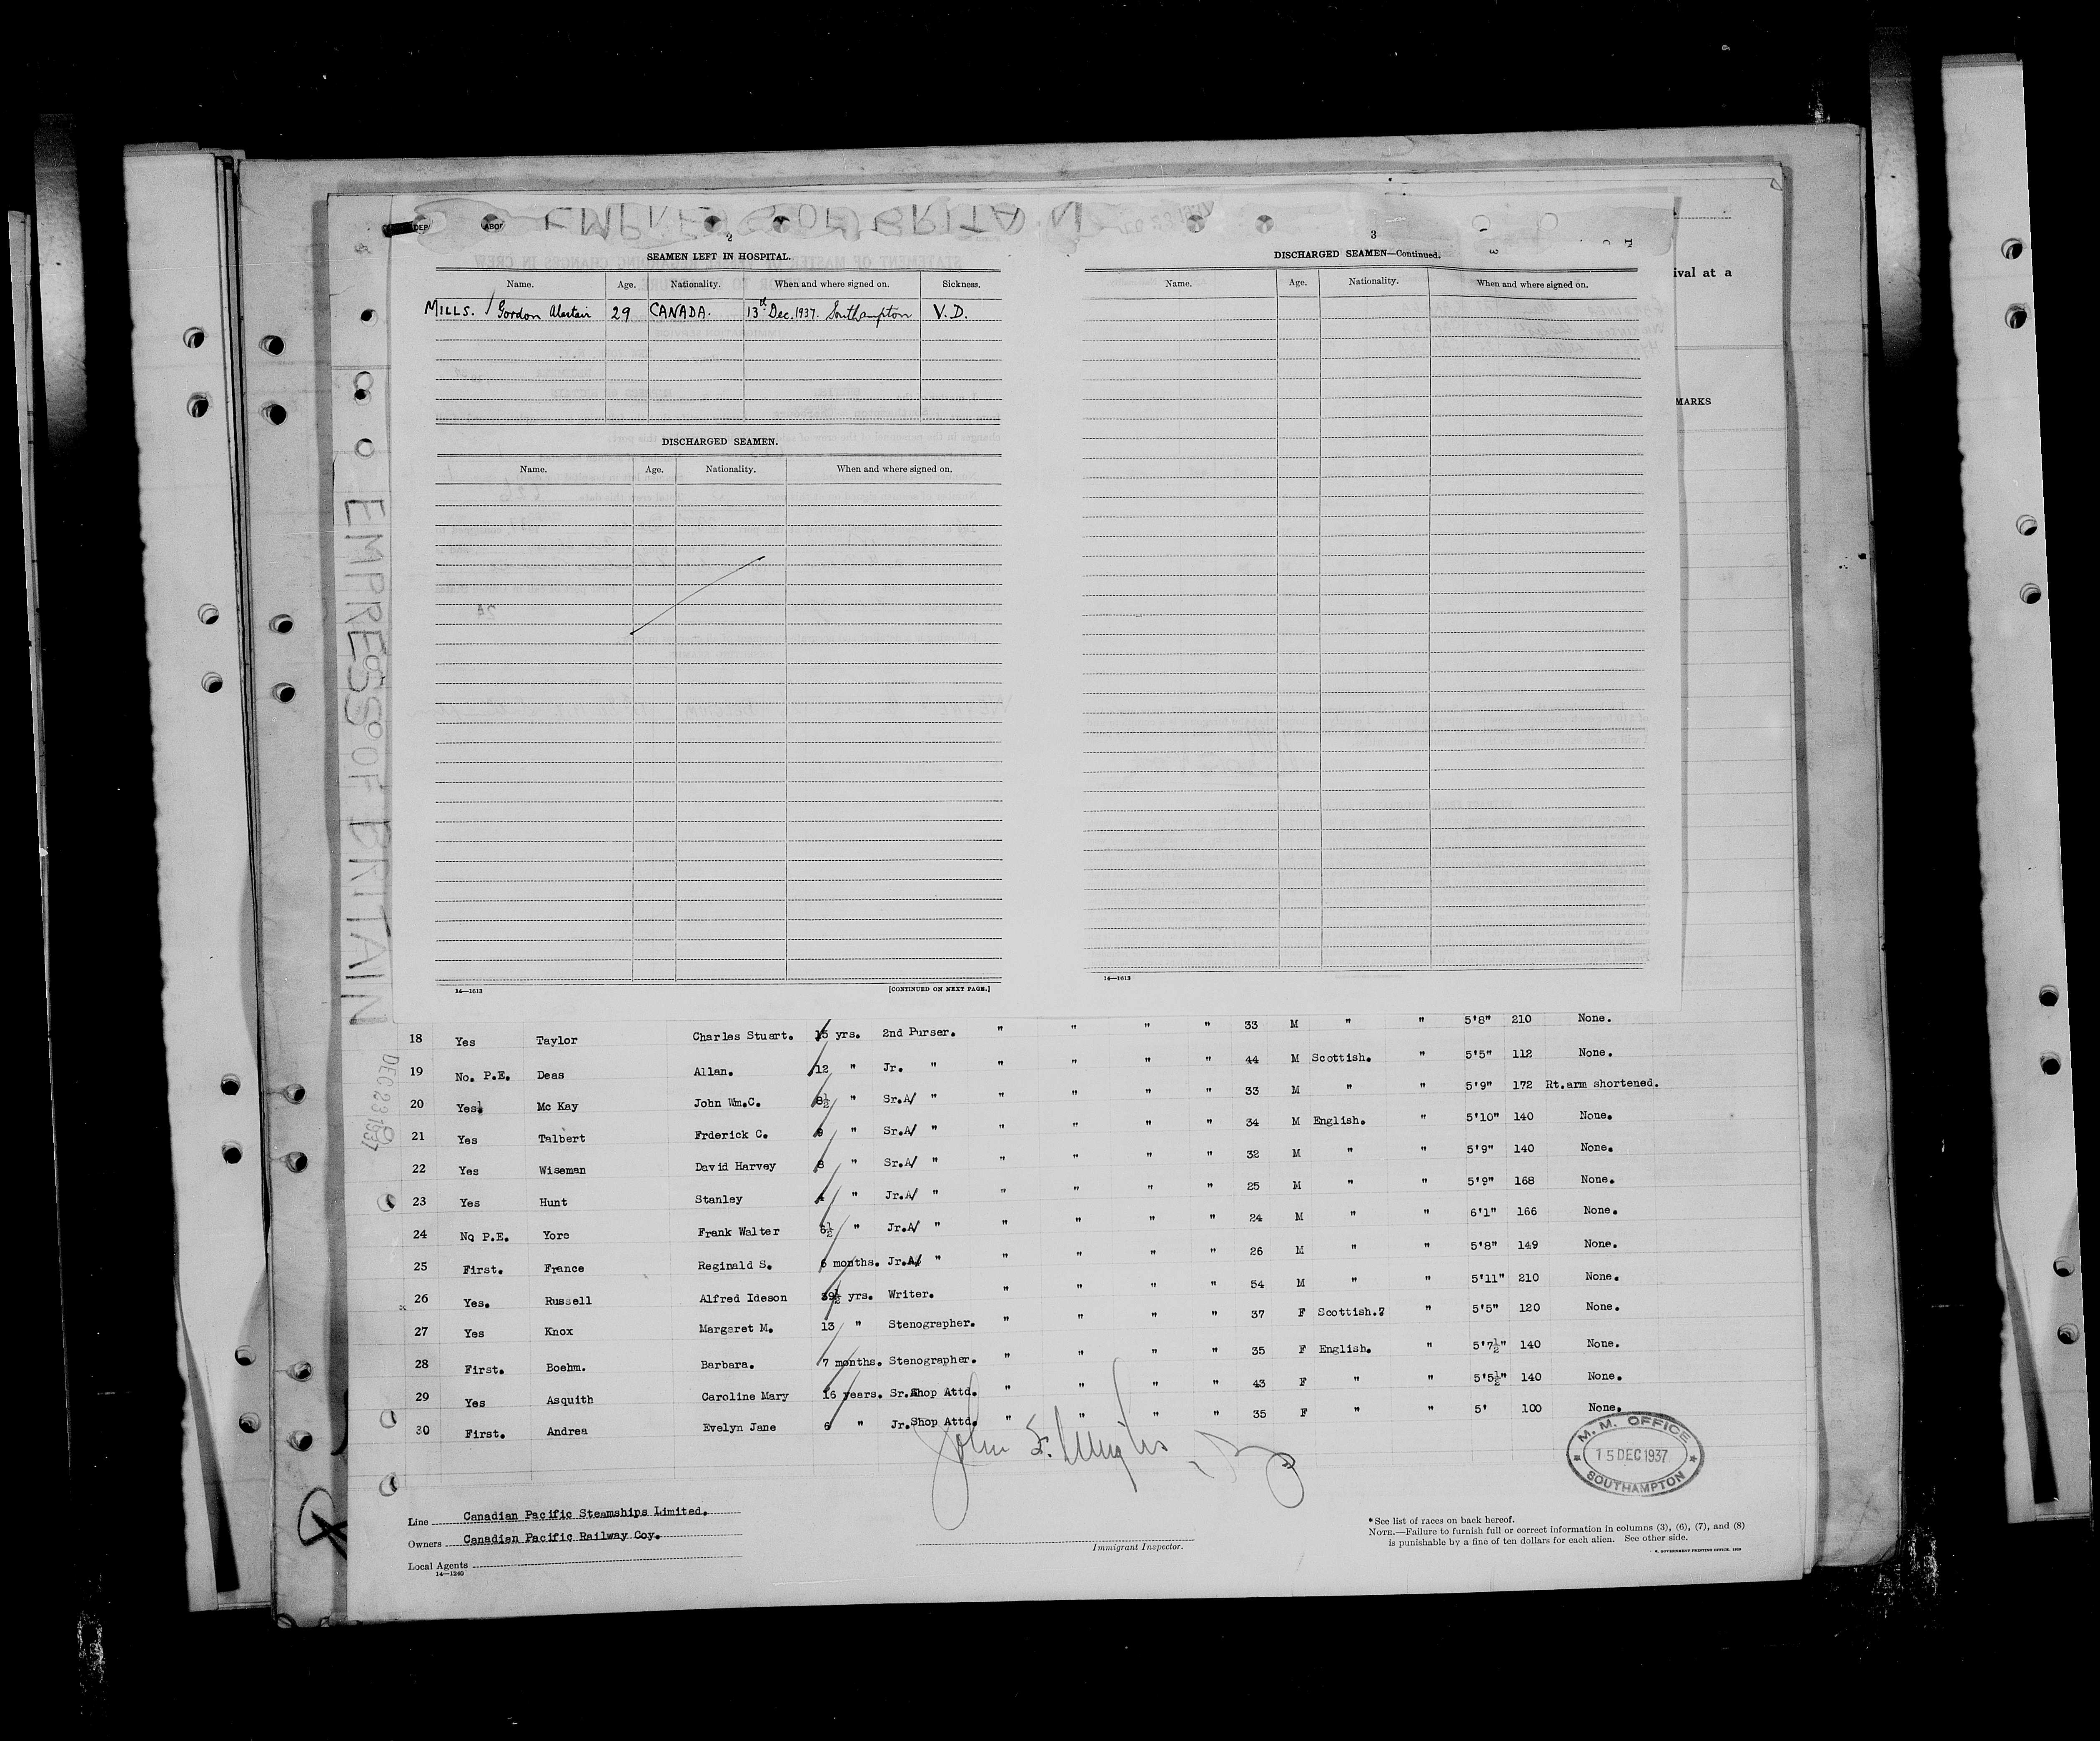 2
SEAMEN LEFT IN HOSPITAL.
Name. Age. Nationality. When and where signed on. Sickness.
MILLS. / Gordon Alastair 29 CANADA. 13th Dec. 1937. Southampton V.D.
DISCHARGED SEAMEN.
Name. Age. Nationality. When and where signed on.
14—1613 [CONTINUED ON NEXT PAGE.]
3
DISCHARGED SEAMEN—Continued.
Name. Age. Nationality. When and where signed on.
14—1613
ival at a
MARKS
EMPRESS OF BRITAIN
DEC 23 1937
18 Yes Taylor Charles Stuart. 15 yrs. 2nd Purser. " " " " 33 M " " 5'8" 210 None.
19 No. P.E. Deas Allan. 12 " Jr. " " " " " 44 M Scottish. " 5'5" 112 None.
20 Yes. Mc Kay John Wm.C. 8½ " Sr.A/ " " " " " 33 M " " 5'9" 172 Rt.arm shortened.
21 Yes Talbert Frderick C. 9 " Sr.A/ " " " " " 34 M English. " 5'10" 140 None.
22 Yes Wiseman David Harvey 8 " Sr.A/ " " " " " 32 M " " 5'9" 140 None.
23 Yes Hunt Stanley 4 " Jr.A/ " " " " " 25 M " " 5'9" 168 None.
24 No P.E. Yore Frank Walter 6½ " Jr.A/ " " " " " 24 M " " 6'1" 166 None.
25 First. France Reginald S. 6 months. Jr.A/ " " " " " 26 M " " 5'8" 149 None.
26 Yes. Russell Alfred Ideson 39½ yrs. Writer. " " " " 54 M " " 5'11" 210 None.
27 Yes Knox Margaret M. 13 " Stenographer. " " " " 37 F Scottish. " 5'5" 120 None.
28 First. Boehm. Barbara. 7 months. Stenographer. " " " " 35 F English. " 5'7½" 140 None.
29 Yes Asquith Caroline Mary 16 years. Sr.Shop Attd. " " " " 43 F " " 5'5½" 140 None.
30 First. Andrea Evelyn Jane 6 " Jr.Shop Attd. " " " " 35 F " " 5' 100 None.
M. M. OFFICE
15 DEC 1937
SOUTHAMPTON
Line Canadian Pacific Steamships Limited.
Owners Canadian Pacific Railway Coy.
Local Agents
14—1240
Immigrant Inspector.
*See list of races on back hereof.
NOTE.—Failure to furnish full or correct information in columns (3), (6), (7), and (8)
is punishable by a fine of ten dollars for each alien. See other side.